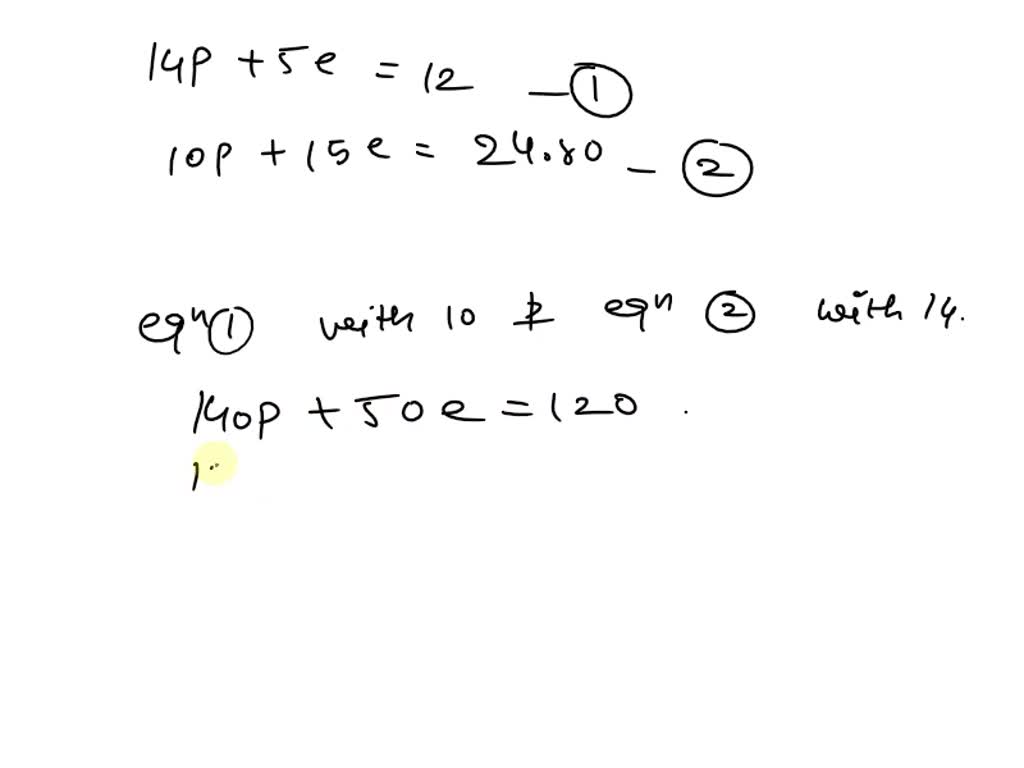 14p + 5e = 12 — ①
10p + 15e = 24.80 — ②
eqⁿ ① with 10 & eqⁿ ② with 14.
140p + 50e = 120 .
1